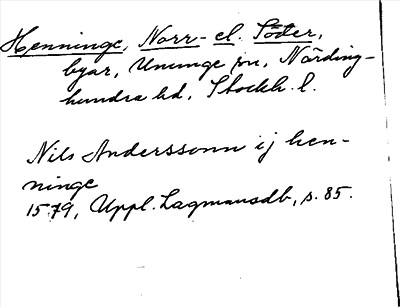 Henninge, Norr- el. Söder,
byar, Ununge sn, Närding-
hundra hd, Stockh. l.
Nils Anderssonn ij hen-
ninge
1579, Uppl. Lagmansdb, s. 85.